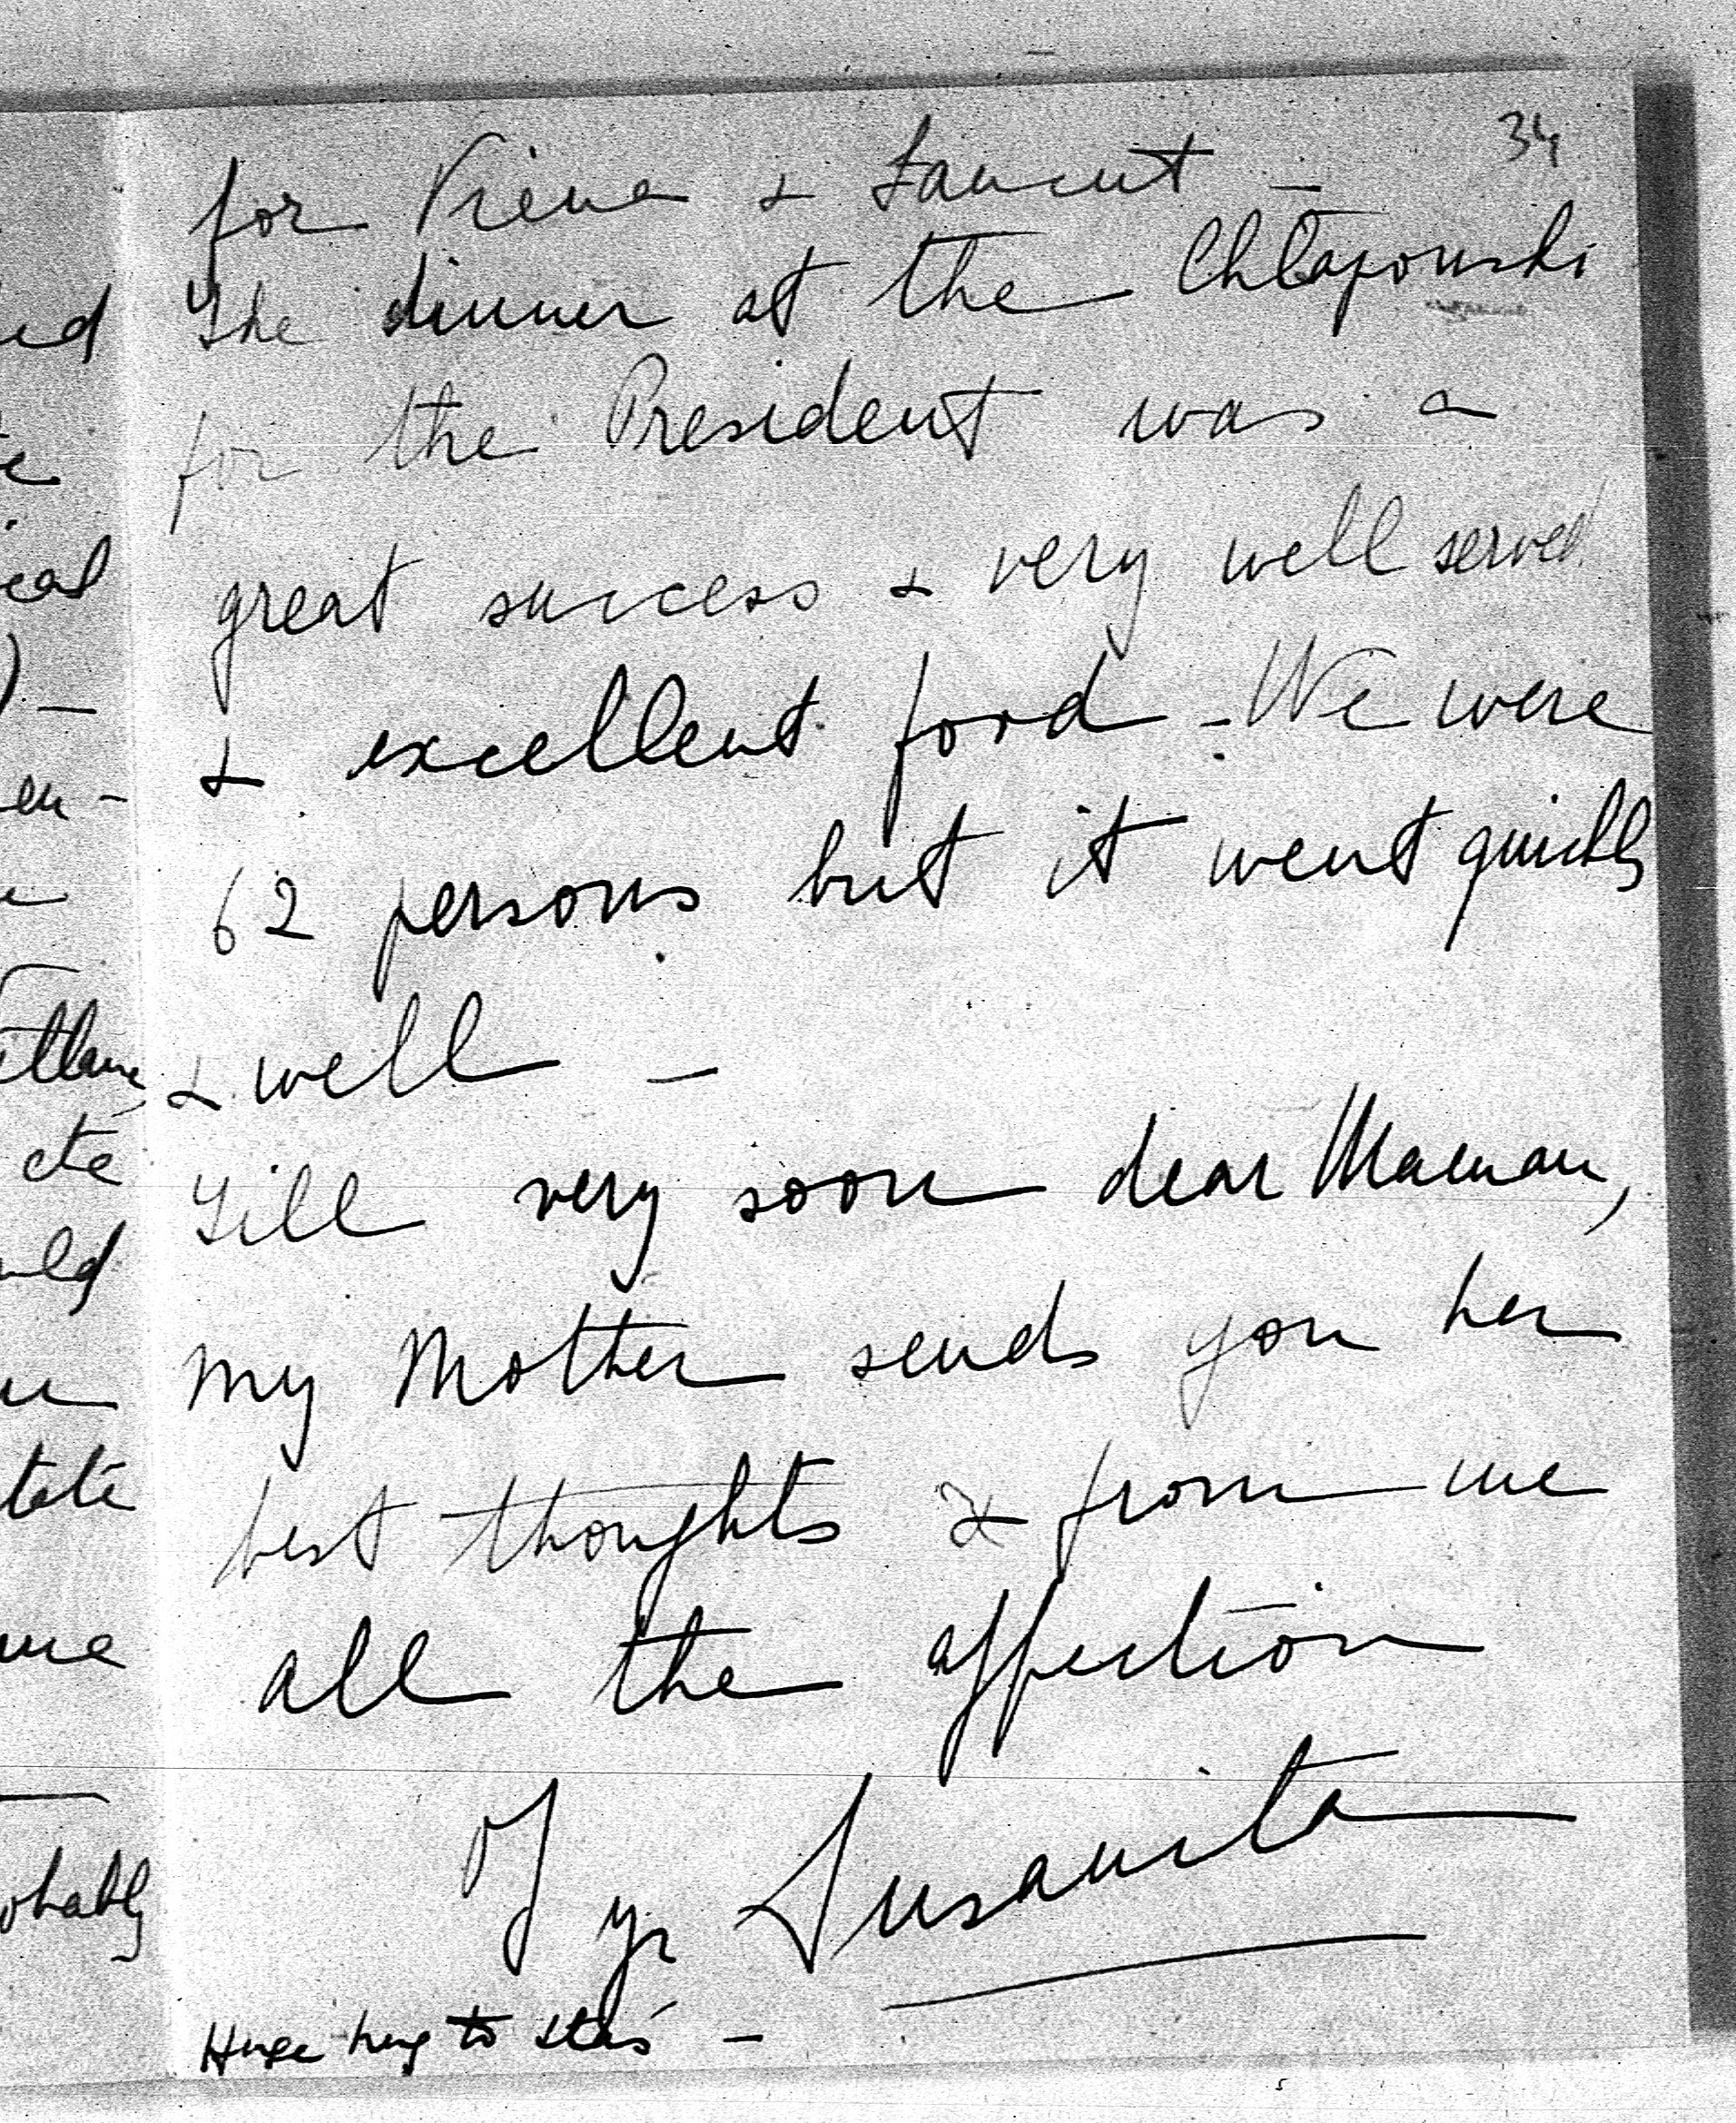 34
for Viena & Lancut –
The dinner at the Chłapowski
for the President was a
great success & very well served
& excellent food – We were
62 persons but it went quickly
& well –
Till very soon dear Maman,
my Mother sends you her
best thoughts & from me
all the affection
Of yr Susanita
Huge hug to Staś –
ed
te
eal
) –
en –
ettlaure
cte
uld
tete
me
obably